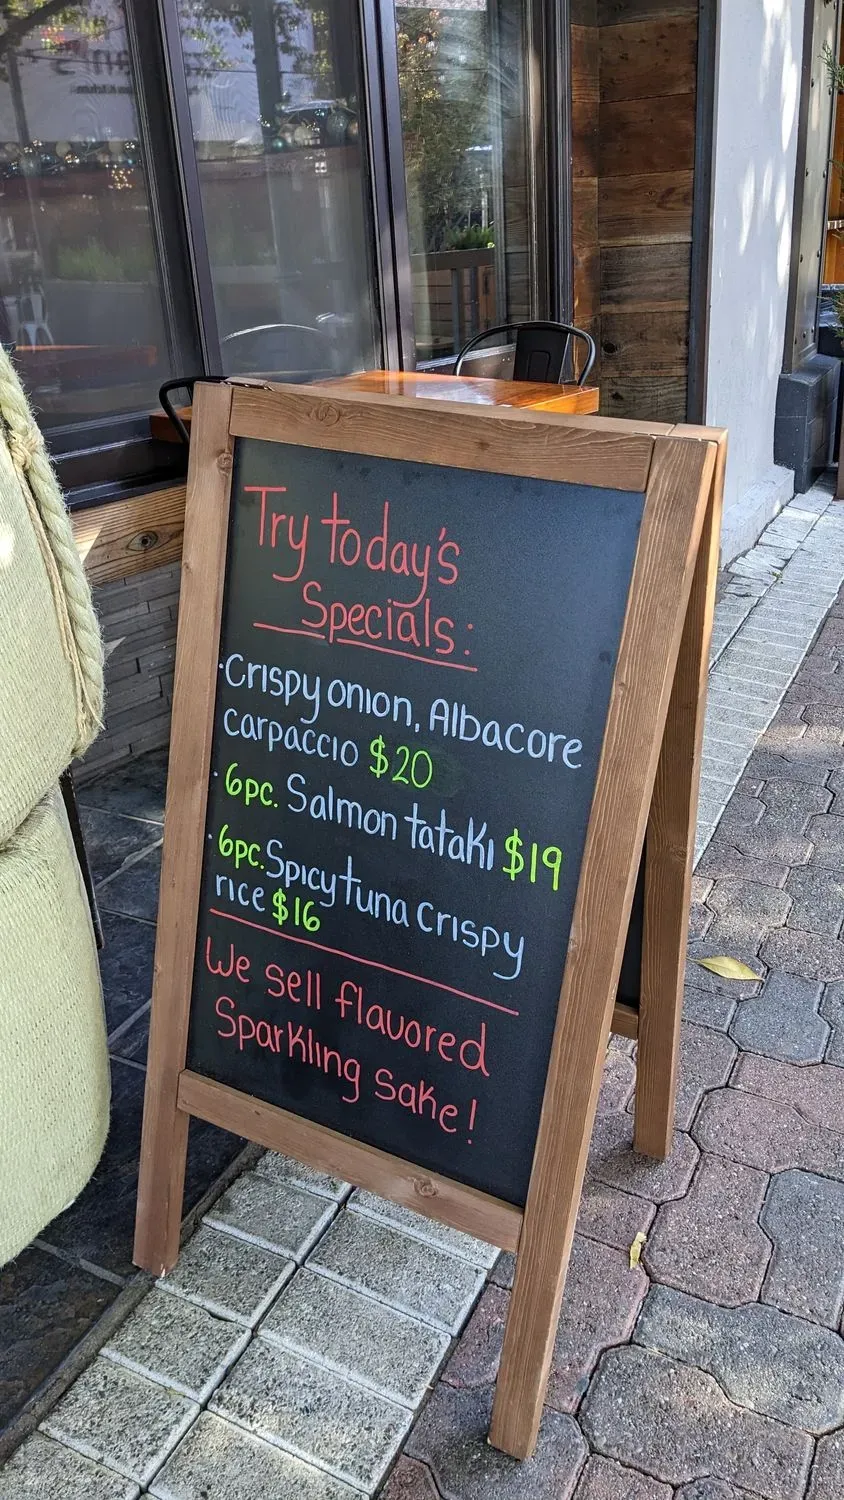 Try today's
Specials:
·Crispy onion, Albacore
carpaccio $20
·6pc. Salmon tataki $19
·6pc. Spicy tuna crispy
rice $16
We sell flavored
Sparkling sake!